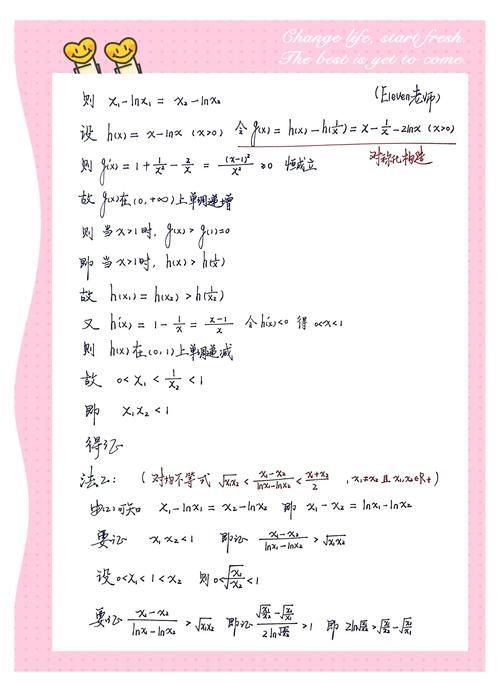 Change life, start fresh.
The best is yet to come.
则 x₁-lnx₁ = x₂-lnx₂ (Eleven老师)
设 h(x) = x-lnx (x>0) 令 g(x) = h(x)-h(1/x) = x-1/x-2lnx (x>0)
对称化构造
则 g'(x) = 1+1/x²-2/x = (x-1)²/x² ≥0 恒成立
故 g(x)在(0,+∞)上单调递增
则 当x>1时, g(x) > g(1)=0
即 当x>1时, h(x) > h(1/x)
故 h(x₁) = h(x₂) > h(1/x₂)
又 h'(x) = 1-1/x = (x-1)/x 令h'(x)<0 得 0<x<1
则 h(x)在(0,1)上单调递减
故 0<x₁<1/x₂<1
即 x₁x₂<1
得证
法二: (对均不等式 √x₁x₂ < (x₁-x₂)/(lnx₁-lnx₂) < (x₁+x₂)/2 , x₁≠x₂ 且 x₁,x₂∈R+)
由(2)可知 x₁-lnx₁ = x₂-lnx₂ 即 x₁-x₂ = lnx₁-lnx₂
要证 x₁x₂<1 即证 (x₁-x₂)/(lnx₁-lnx₂) > √x₁x₂
设 0<x₁<1<x₂ 则 0<√(x₁/x₂)<1
要证 (x₁-x₂)/(lnx₁-lnx₂) > √x₁x₂ 即证 (√(x₁/x₂)-√(x₂/x₁))/(2ln√(x₁/x₂)) >1 即 2ln√(x₁/x₂) > √(x₁/x₂)-√(x₂/x₁)